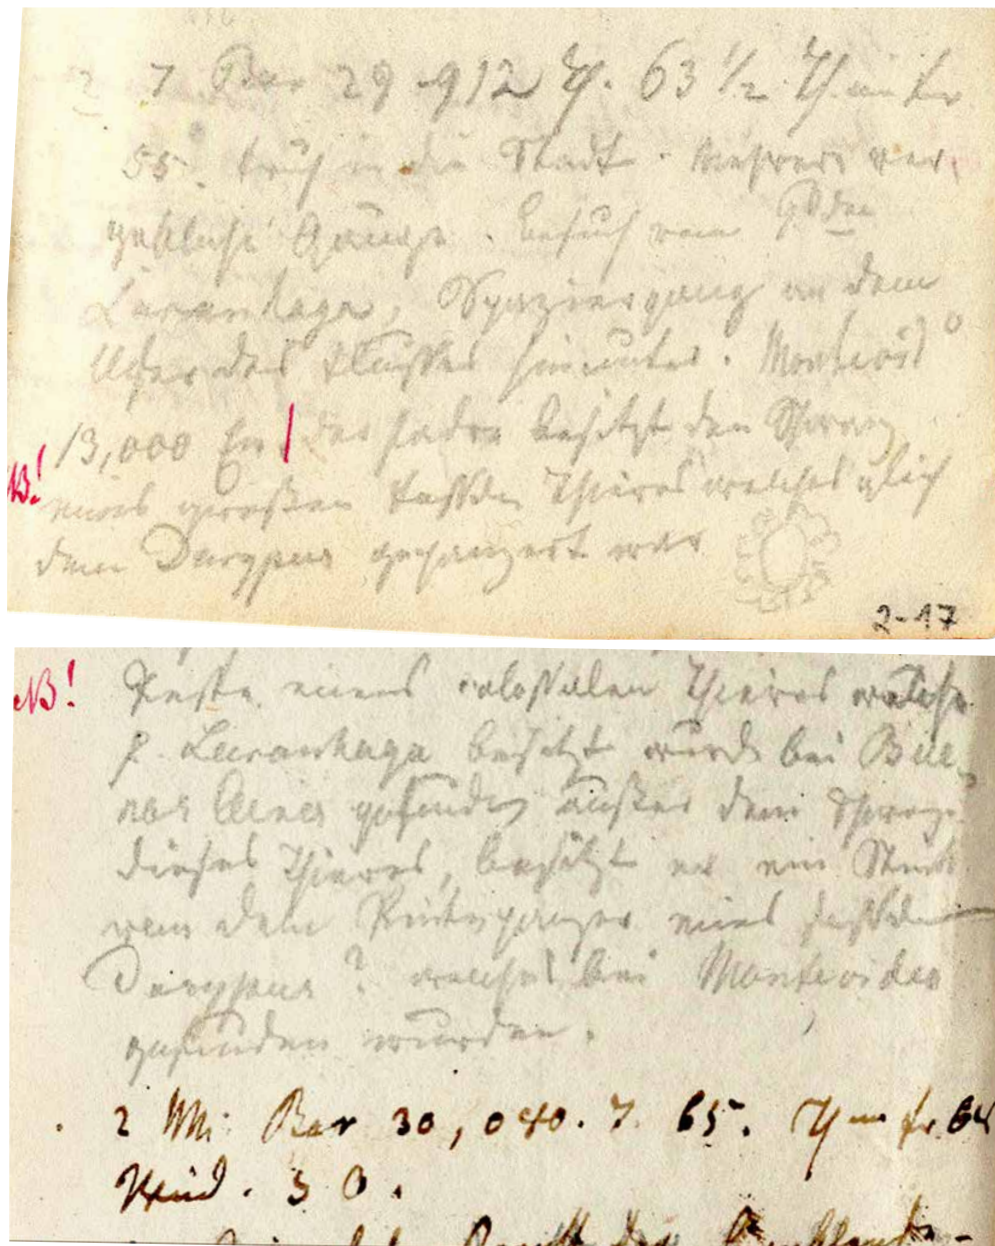 2 7 Bar 29 912 Th. 63 1/2 Th im fr
55. früh in die Stadt. Mehrere ver-
gebliche Gänge. Besuch vom
Larranhaga, Spaziergang an dem
Ufer des Flusses hinunter. Montevid°
13,000 Ein der padre besitzt den Schwanz
NB! eines großen fossilen Thieres welches gleich
dem Dasypus gepanzert war
2-17
NB! Reste eines colossalen Thieres welche
P. Larranhaga besitzt wurde bei Bue-
nos Aires gefunden außer dem Schwanz
dieses Thieres, besitzt er ein Stück
von dem Rückenpanzer eines fossilen
Dasypus? welches bei Montevideo
gefunden wurden.
2 Mi. Bar 30,040. 7. 65. Th im fr. 64
Wind. S O.